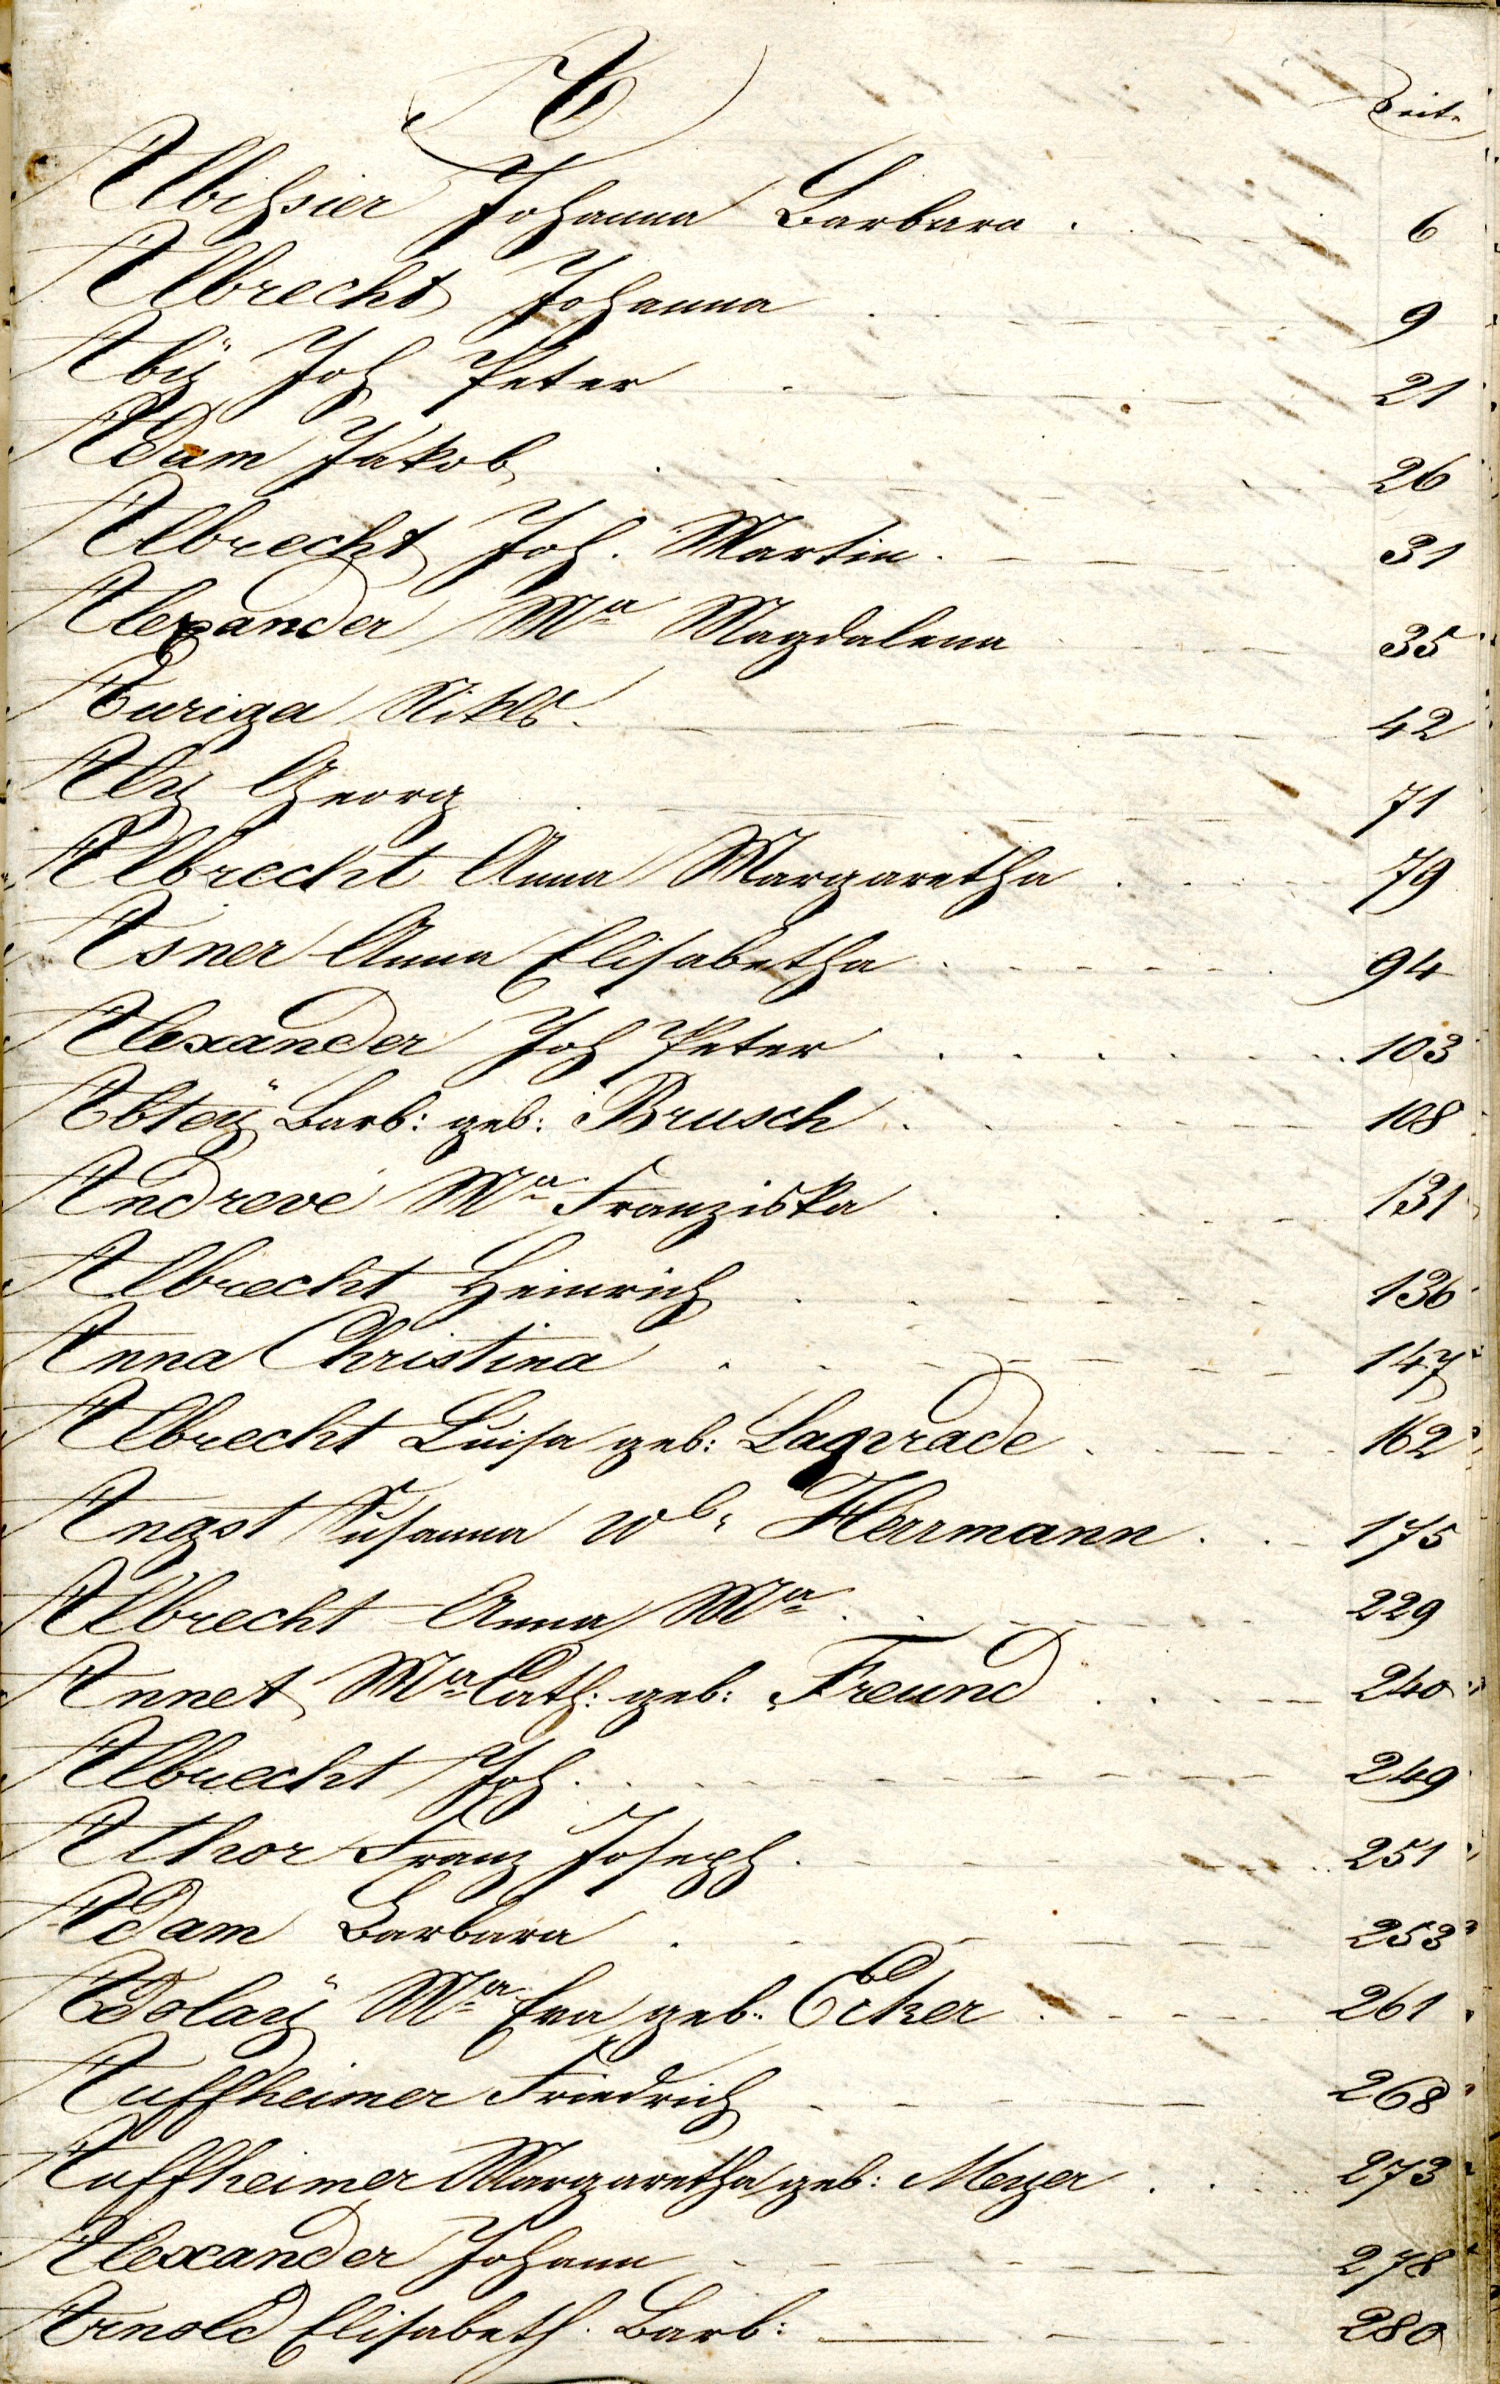 A
Seite
Albißier Johanna Barbara . 6
Albrecht Johanna . 9
Abÿ Joh Peter . 21
Adam Jakob . 26
Albrecht Joh. Martin . 31
Alexander Ma Magdalena 35
Auriga Nikls. 42
Aly Georg . 71
Albrecht Anna Margaretha . 79
Asner Anna Elisabetha . 94
Alexander Joh Peter . 103
Abteÿ Barb: geb: Brusch . 108
Andreve Ma Franziska . 131
Albrecht Heinrich . 136
Anna Christina . 147
Albrecht Luisa geb: Lagrade . 162
Angst Susanna Wb. Herrmann . 175
Albrecht Anna Ma . 229
Annet Ma Cath: geb: Freund . 240
Albrecht Joh. 249
Athor Franz Joseph . 251
Adam Barbara . 253
Adolaÿ Ma Eva geb: Ecker . 261
Auffheimer Friedrich 268
Auffheimer Margaretha geb: Meyer . 273
Alexander Johann 278
Arnold Elisabeth. Barb: 280